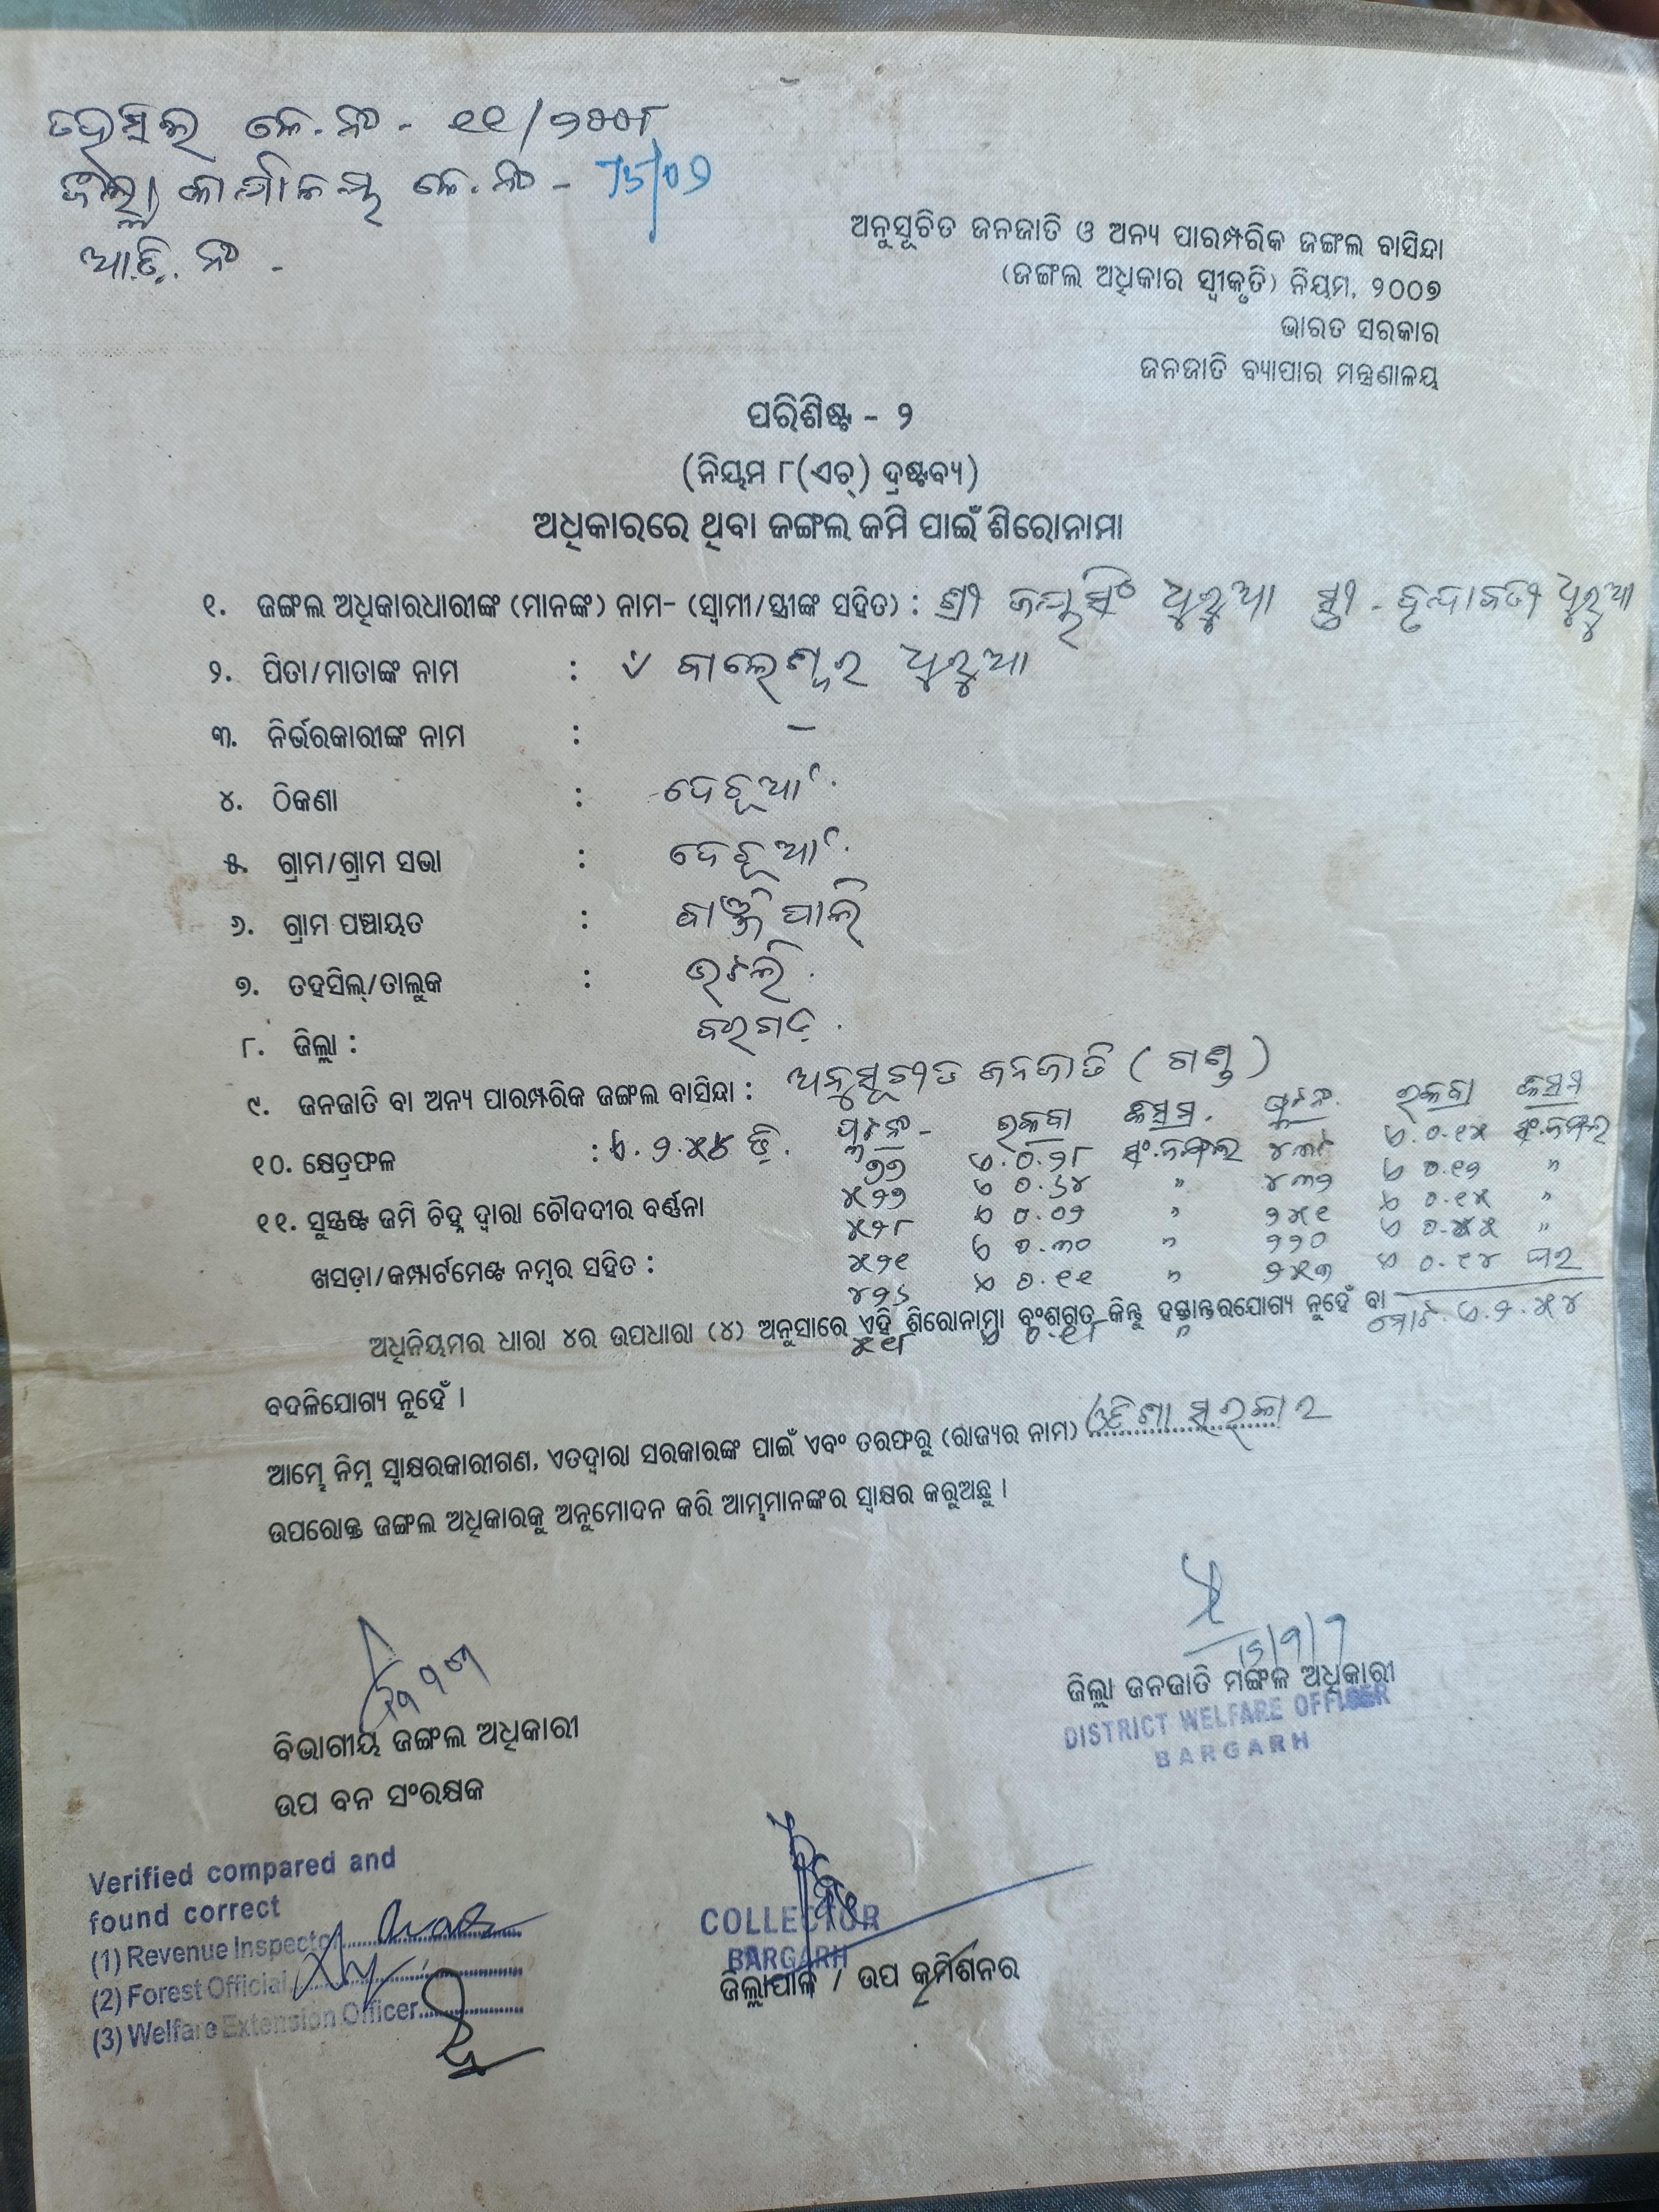 ତହସିଲ କେ.ନଂ - ୧୧/୨୦୦୮
ଜିଲ୍ଲା କାର୍ଯ୍ୟାଳୟ କେ.ନଂ - 75/09
ଆ.ଡି. ନଂ -
ଅନୁସୂଚିତ ଜନଜାତି ଓ ଅନ୍ୟ ପାରମ୍ପରିକ ଜଙ୍ଗଲ ବାସିନ୍ଦା
(ଜଙ୍ଗଲ ଅଧିକାର ସ୍ୱୀକୃତି) ନିୟମ, ୨୦୦୭
ଭାରତ ସରକାର
ଜନଜାତି ବ୍ୟାପାର ମନ୍ତ୍ରଣାଳୟ
ପରିଶିଷ୍ଟ - ୨
(ନିୟମ ୮(ଏଚ୍) ଦ୍ରଷ୍ଟବ୍ୟ)
ଅଧିକାରରେ ଥିବା ଜଙ୍ଗଲ ଜମି ପାଇଁ ଶିରୋନାମା
୧. ଜଙ୍ଗଲ ଅଧିକାରଧାରୀଙ୍କ (ମାନଙ୍କ) ନାମ- (ସ୍ୱାମୀ/ସ୍ତ୍ରୀଙ୍କ ସହିତ) : ଶ୍ରୀ ଜୟସିଂ ଧୁରୁଆ ସ୍ତ୍ରୀ - ବୃନ୍ଦାବତୀ ଧୁରୁଆ
୨. ପିତା/ମାତାଙ୍କ ନାମ : ବାଲେଶ୍ୱର ଧୁରୁଆ
୩. ନିର୍ଭରକାରୀଙ୍କ ନାମ : -
୪. ଠିକଣା :
୫. ଗ୍ରାମ/ଗ୍ରାମ ସଭା :
୬. ଗ୍ରାମ ପଞ୍ଚାୟତ :
୭. ତହସିଲ୍/ତାଲୁକ : ଭଟଲି
୮. ଜିଲ୍ଲା : ବରଗଡ଼
୯. ଜନଜାତି ବା ଅନ୍ୟ ପାରମ୍ପରିକ ଜଙ୍ଗଲ ବାସିନ୍ଦା : ଅନୁସୂଚୀତ ଜନଜାତି (ଗଣ୍ଡ)
୧୦. କ୍ଷେତ୍ରଫଳ : ଏ.୨.୫୪ ଡି. ପ୍ଲଟନଂ - ରକବା କିସମ. ପ୍ଲଟନଂ. ରକବା କିସମ
୭୭ ଏ.୦.୨୮ ଏ.୦.୧୫
୫୨୭ ଏ ୦.୬୪ " ୪୩୨ ଏ ୦.୧୨ "
୧୧. ସୁସ୍ପଷ୍ଟ ଜମି ଚିହ୍ନ ଦ୍ୱାରା ଚୌଦଦୀର ବର୍ଣ୍ଣନା ୫୨୮ ଏ ୦.୦୨ " ୨୫୧ ଏ ୦.୧୫ "
୫୨୧ ଏ ୦.୩୦ " ୨୨୦ "
ଖସଡ଼ା/କମ୍ପାର୍ଟମେଣ୍ଟ ନମ୍ବର ସହିତ : ୪୨୬ ଏ ୦.୧୧ " ୨୫୩ ଏ ୦.୧୪ ଘର
ଅଧିନିୟମର ଧାରା ୪ର ଉପଧାରା (୪) ଅନୁସାରେ ଏହି ଶିରୋନାମା ବଂଶଗତ କିନ୍ତୁ ହସ୍ତାନ୍ତରଯୋଗ୍ୟ ନୁହେଁ ବା ମୋଟ.ଏ.୨.୫୪
ବଦଳିଯୋଗ୍ୟ ନୁହେଁ ।
ଆମ୍ଭେ ନିମ୍ନ ସ୍ୱାକ୍ଷରକାରୀଗଣ, ଏତଦ୍ୱାରା ସରକାରଙ୍କ ପାଇଁ ଏବଂ ତରଫରୁ (ରାଜ୍ୟର ନାମ) ଓଡିଶା ସରକାର
ଉପରୋକ୍ତ ଜଙ୍ଗଲ ଅଧିକାରକୁ ଅନୁମୋଦନ କରି ଆମ୍ଭମାନଙ୍କର ସ୍ୱାକ୍ଷର କରୁଅଛୁ ।
ଜିଲ୍ଲା ଜନଜାତି ମଙ୍ଗଳ ଅଧିକାରୀ
DISTRICT WELFARE OFFICER
BARGARH
ବିଭାଗୀୟ ଜଙ୍ଗଲ ଅଧିକାରୀ
ଉପ ବନ ସଂରକ୍ଷକ
Verified compared and
found correct
(1) Revenue Inspector
(2) Forest Official
(3) Welfare Extension Officer
COLLECTOR
BARGARH
ଜିଲ୍ଲାପାଳ / ଉପ କମିଶନର